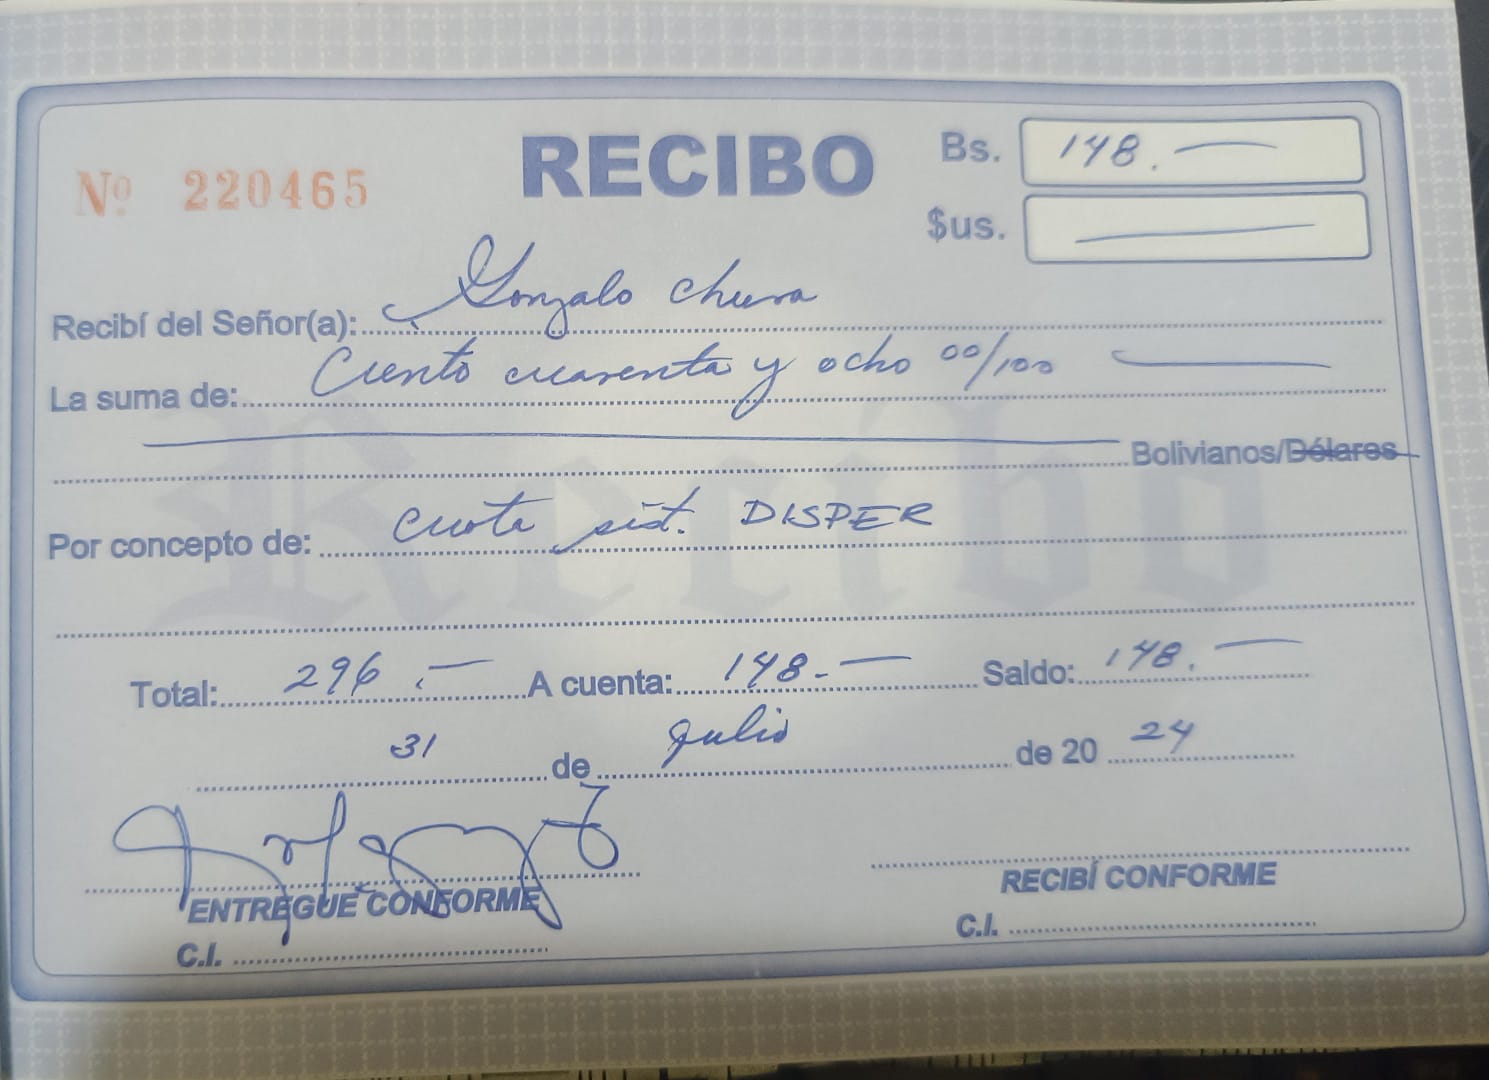 Nº 220465
RECIBO
Bs. 148.—
$us. —
Recibí del Señor(a): Gonzalo Chura
La suma de: Ciento cuarenta y ocho 00/100 —
— Bolivianos/Dólares
Por concepto de: Cuota sist. DISPER
Total: 296.— A cuenta: 148.— Saldo: 148.—
31 de Julio de 20 24
ENTREGUE CONFORME
RECIBÍ CONFORME
C.I.
C.I.
Recibo